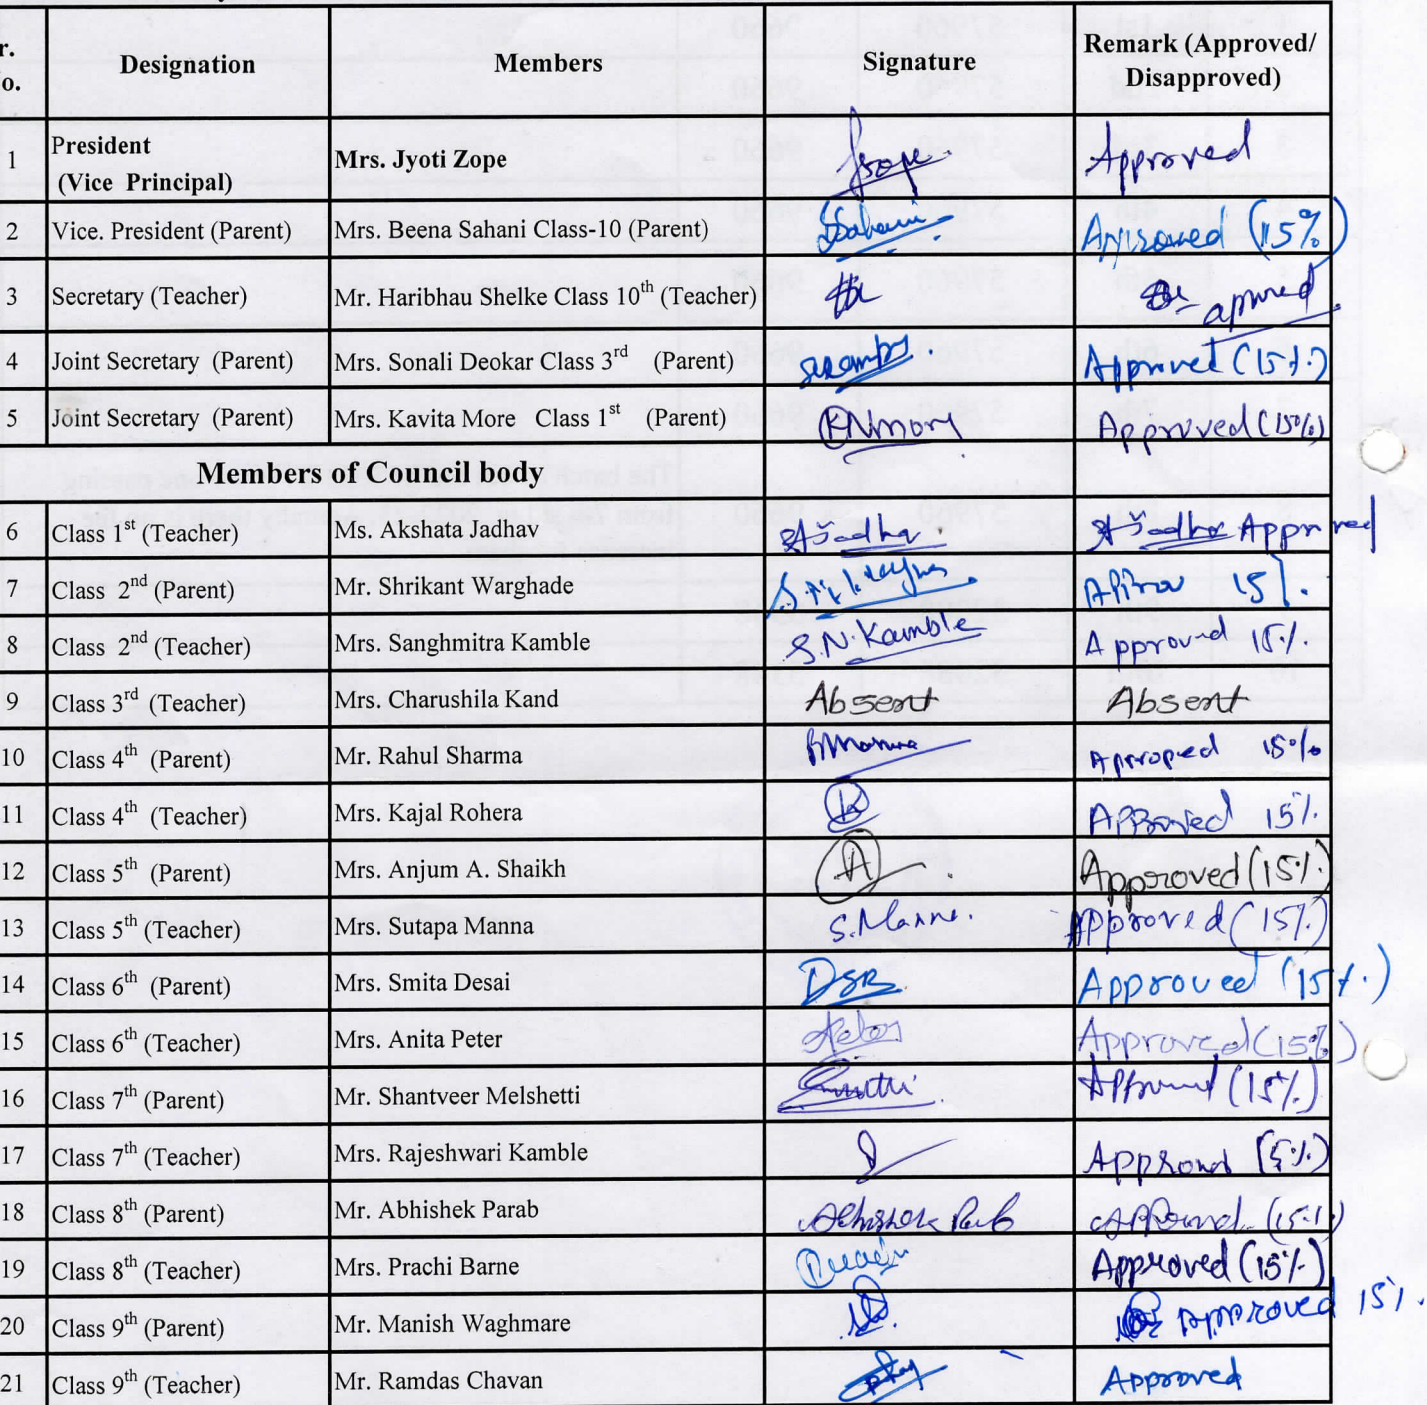 r. o. Designation Members Signature Remark (Approved/ Disapproved)
1 President (Vice Principal) Mrs. Jyoti Zope Approved
2 Vice. President (Parent) Mrs. Beena Sahani Class-10 (Parent) Sahani Approved (15%)
3 Secretary (Teacher) Mr. Haribhau Shelke Class 10th (Teacher)
4 Joint Secretary (Parent) Mrs. Sonali Deokar Class 3rd (Parent) Approved (15%)
5 Joint Secretary (Parent) Mrs. Kavita More Class 1st (Parent) KNmore Approved (15%)
Members of Council body
6 Class 1st (Teacher) Ms. Akshata Jadhav Approved
7 Class 2nd (Parent) Mr. Shrikant Warghade 15%.
8 Class 2nd (Teacher) Mrs. Sanghmitra Kamble S.N.Kamble Approved 15%.
9 Class 3rd (Teacher) Mrs. Charushila Kand Absent Absent
10 Class 4th (Parent) Mr. Rahul Sharma Approved 15%
11 Class 4th (Teacher) Mrs. Kajal Rohera K Approved 15%.
12 Class 5th (Parent) Mrs. Anjum A. Shaikh A Approved (15%)
13 Class 5th (Teacher) Mrs. Sutapa Manna S.Manna. Approved (15%)
14 Class 6th (Parent) Mrs. Smita Desai DSR Approved (15%)
15 Class 6th (Teacher) Mrs. Anita Peter Approved (15%)
16 Class 7th (Parent) Mr. Shantveer Melshetti Approved (15%)
17 Class 7th (Teacher) Mrs. Rajeshwari Kamble Approved (5%)
18 Class 8th (Parent) Mr. Abhishek Parab Abhishek Parab Approved (15%)
19 Class 8th (Teacher) Mrs. Prachi Barne Approved (15%)
20 Class 9th (Parent) Mr. Manish Waghmare Approved 15%.
21 Class 9th (Teacher) Mr. Ramdas Chavan Approved